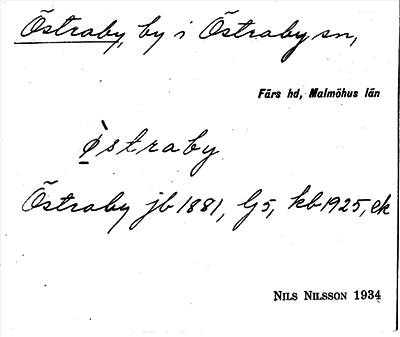 Östraby, by i Östraby sn,
Färs hd, Malmöhus län
ö̀straby
Östraby jb 1881, G5, kb 1925, ek
NILS NILSSON 1934